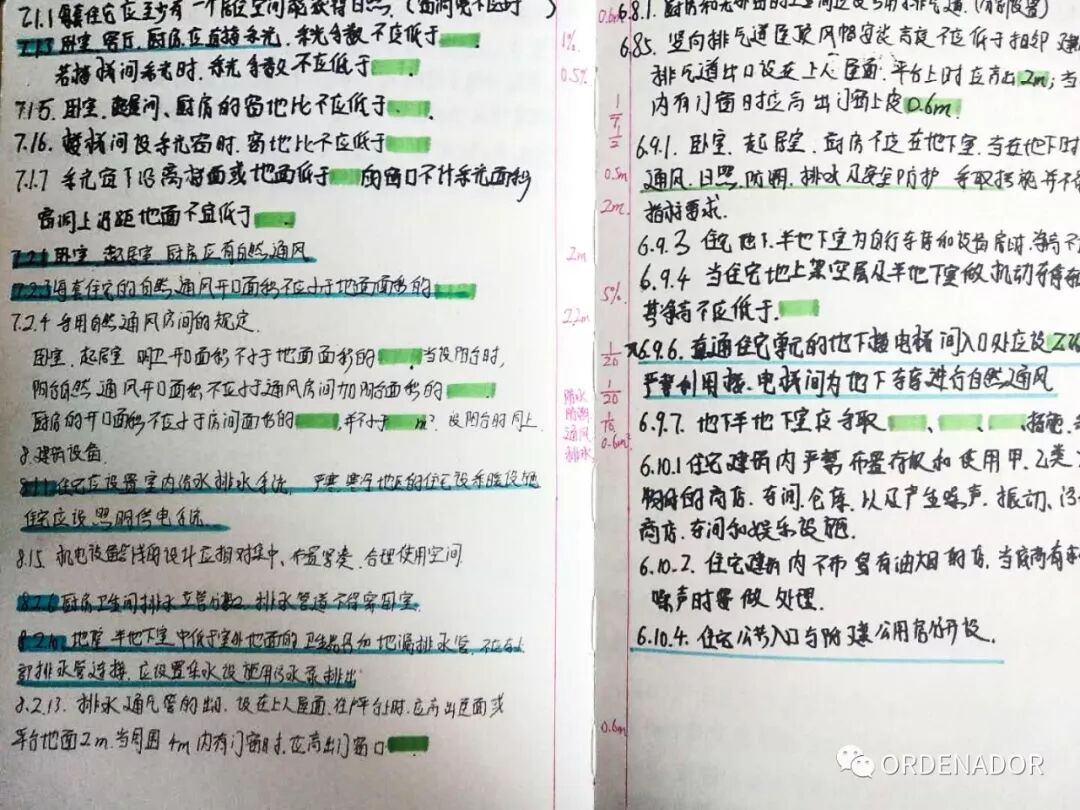 7.1.1 每套住宅应至少有一个居住空间能获得日照（
7.1.3 卧室、客厅、厨房应直接采光，采光系数不应低于
若楼梯间采光时，采光系数不应低于
7.1.5. 卧室、起居间、厨房的窗地比不应低于
7.1.6. 楼梯间设采光窗时，窗地比不应低于
7.1.7 采光窗下沿离楼面或地面低于 的窗口不计采光面积
窗洞上沿距地面不宜低于
7.2.1 卧室、起居室、厨房应有自然通风
7.2.3 每套住宅的自然通风开口面积不应小于地面面积的
7.2.4 采用自然通风房间的规定.
卧室、起居室 明卫开口面积不小于地面面积的 当设阳台时,
阳台自然通风开口面积不应小于通风房间加阳台面积的
厨房的开口面积不应小于房间面积的 ,并不小于 m². 设阳台时同上.
8. 建筑设备.
8.1.1 住宅应设置室内给水排水系统. 严寒、寒冷地区的住宅设采暖设施
住宅应设照明供电系统.
8.1.5 机电设备管线的设计应相对集中、布置紧凑、合理使用空间.
8.2.6 厨房卫生间排水立管分设, 排水管道不得穿卧室.
8.2.10 地下室、半地下室中低于室外地面的卫生器具和地漏排水管, 不应与上
部排水管连接, 应设置集水设施用污水泵排出
8.2.13. 排水通气管的出口, 设在上人屋面、住户平台上时, 应高出屋面或
平台地面2m, 当周围 4m内有门窗时, 应高出门窗口
1%.
0.5%.
1/7
1/12
0.5m
2m.
2m
5%
2.2m
1/20
1/20
防水
防潮
通风
排水
1/10
0.6m²
0.6m
0.6m
6.8.1. 厨房和无外窗的卫生间应设专用排气道.
6.8.5. 竖向排气道屋顶风帽安装高度不应低于相邻建
排气道出口设在上人屋面、平台上时应高出2m; 当
内有门窗时应高出门窗上皮0.6m.
6.9.1. 卧室、起居室、厨房不应在地下室. 当在半地下时
通风、日照、防潮、排水及安全防护 采取措施并不
指标要求.
6.9.3 住宅地下、半地下室为自行车库和设备房时, 净高不
6.9.4 当住宅地上架空层及半地下室做机动车停车
其净高不应低于
6.9.6. 直通住宅单元的地下楼电梯间入口处应设
严禁利用楼、电梯间为地下车库进行自然通风
6.9.7. 地下半地下室应采取 、 、 、 措施.
6.10.1 住宅建筑内严禁布置存放和使用甲、乙类
物品的商店、车间、仓库, 以及产生噪声、振动、污
商店、车间和娱乐设施.
6.10.2. 住宅建筑内不布置有油烟的店, 当底商有
噪声时要做处理.
6.10.4. 住宅公共入口与附建公用房分开设.
ORDENADOR